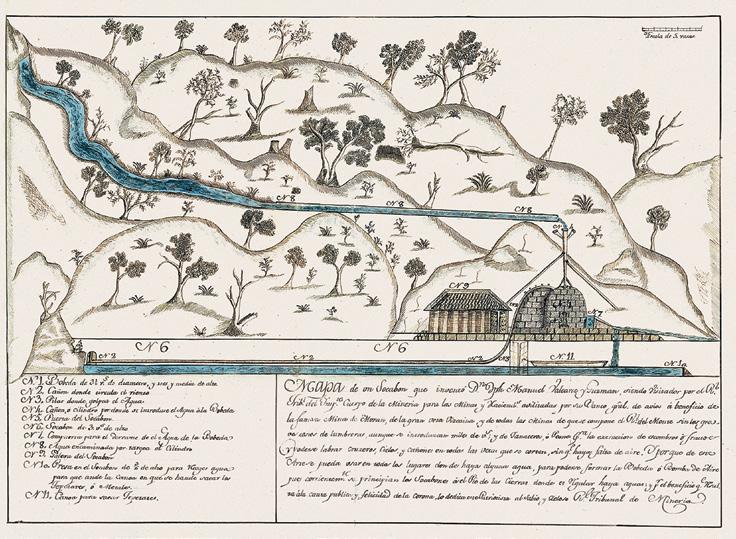 Escala de 5 varas
N. 8
N. 8
N. 8
N. 9
N. 7
N 6
N 6
N. 2
N. 2
N. 2
N. 11
N. 1.o
N. 1. Bobeda de 3½ v.s de diametro, y tres y media de alto
N. 2 Cañon donde circula el viento
N. 3. Pilar donde golpea el Agua
N. 4. Cañon, o Cilindro por donde se introduce el Agua á la Bobeda
N. 5. Puerta del Socabon
N. 6. Socabon de 3 v.s de alto
N. 7. Compuerta para el derrame de el Agua de la Bobeda
N. 8. Agua encaminada por targea al Cilindro
N. 9. Galera del Socabon
N. 1o. Presa en el Socabon de de alto para Recojer agua
para que ande la Canoa en que se hande sacar los
Tepetates, ó Metales.
N. 11. Canoa para sacar Tepetates.
Mapa de un Socabon que inventó D.n Jph. Manuel Valcarz y Guzman, siendo Visitador por el R.l
Trib.l del Cuerpo de la Mineria para las Minas y Haciend.s de avios á beneficio de
la famosa Mina de Moran, de la gran veta Vizcaina, y de todas las Minas de que se compone el R.l del Monte sin los gra-
vosos costos de lumbreras, aunque se introduzcan miles de v.s, y de Tanateros, ó Peones la extraccion de escombros ó frutos
y podrese labrar Cruzeros, Cielos, y Cañones en todas las vetas que se corten, sin q.e haya falta de aire. Y porque de este
Arte se pueda usar en todos los lugares donde haya alguna agua, para poderse formar la Bobeda ó Bomba de Aire
pues corrientem.te se principian los Socabones á el Pie de las Cierras donde es Regular haya aguas; y p.r el beneficio q.e Resul-
ta á la causa publica, y felicidad de la corona, lo dedica el R.l Tribunal de Mineria.